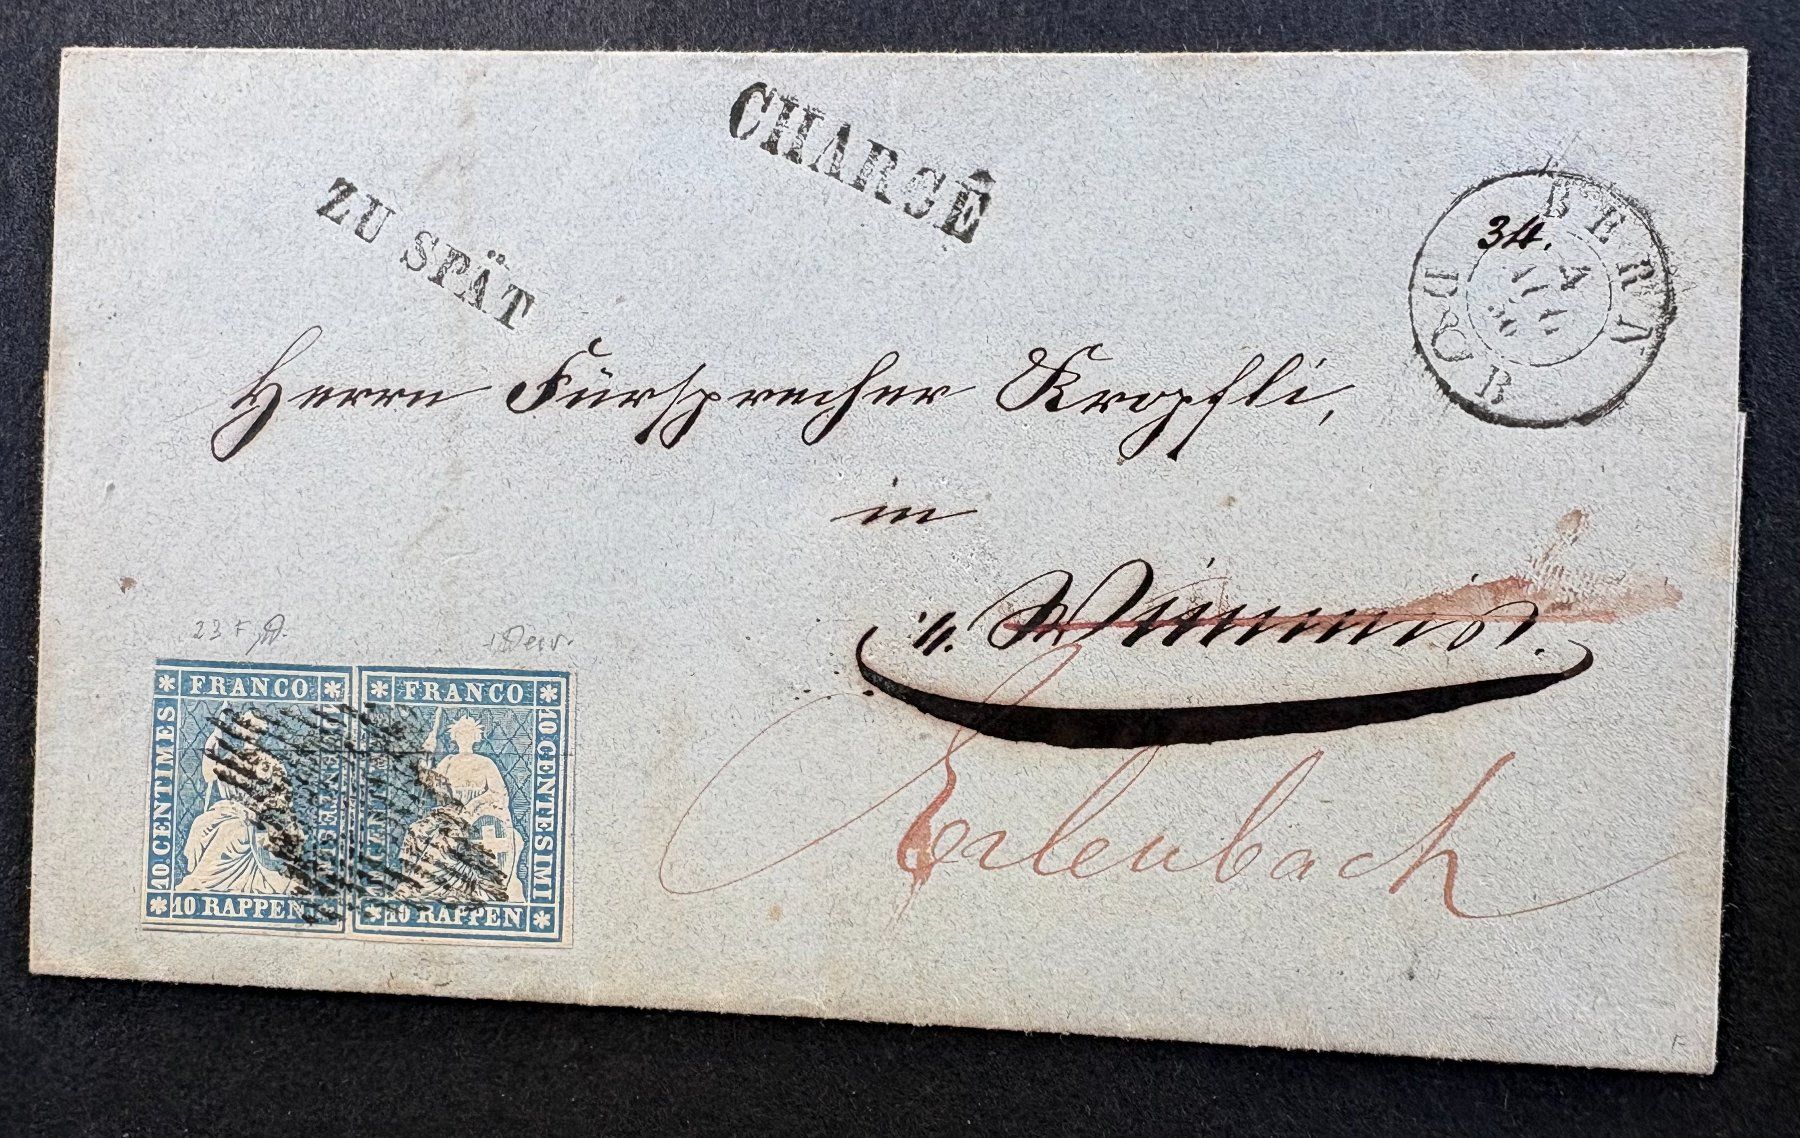 CHARGÉ
ZU SPÄT
BERN
BERN
34.
Herrn Fürsprecher Kropfli,
in
Wimmis.
Erlenbach
23 F
FRANCO
10 CENTIMES
10 RAPPEN
FRANCO
10 CENTESIMI
10 RAPPEN